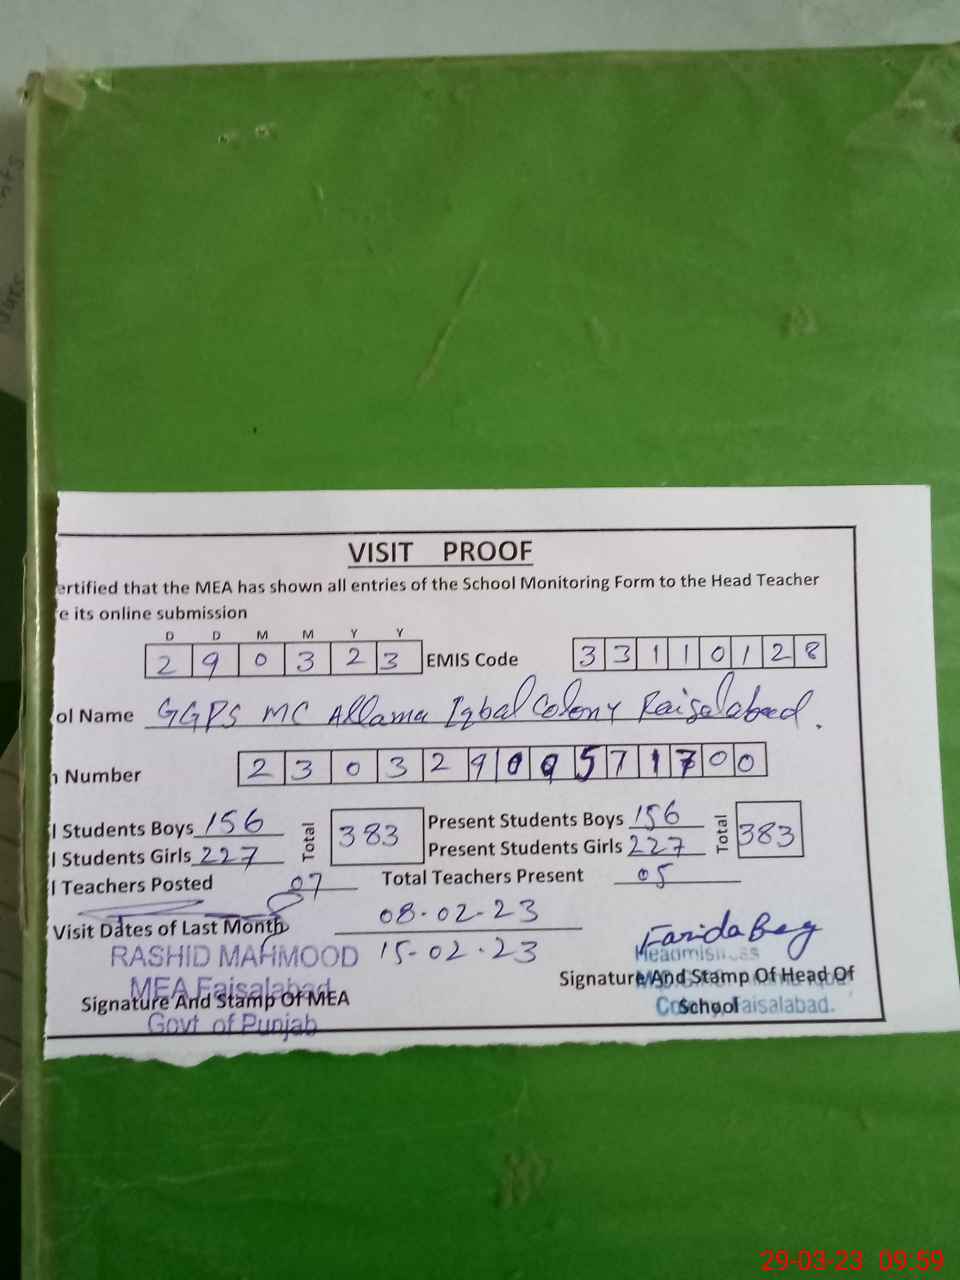 VISIT PROOF
ertified that the MEA has shown all entries of the School Monitoring Form to the Head Teacher
e its online submission
D D M M Y Y
2 9 0 3 2 3 EMIS Code 3 3 1 1 0 1 2 8
ol Name GGPS MC Allama Iqbal Colony Faisalabad.
Number 2 3 0 3 2 9 0 9 5 7 1 7 0 0
l Students Boys 156 Total 383 Present Students Boys 156 Total 383
l Students Girls 227 Present Students Girls 227
l Teachers Posted 07 Total Teachers Present 05
Visit Dates of Last Month 08-02-23
15-02-23
RASHID MAHMOOD
MEA Faisalabad
Govt of Punjab
Signature And Stamp Of MEA
Farida Beg
Headmistress
Colony, Faisalabad.
Signature And Stamp Of Head Of
School
29-03-23 09:59